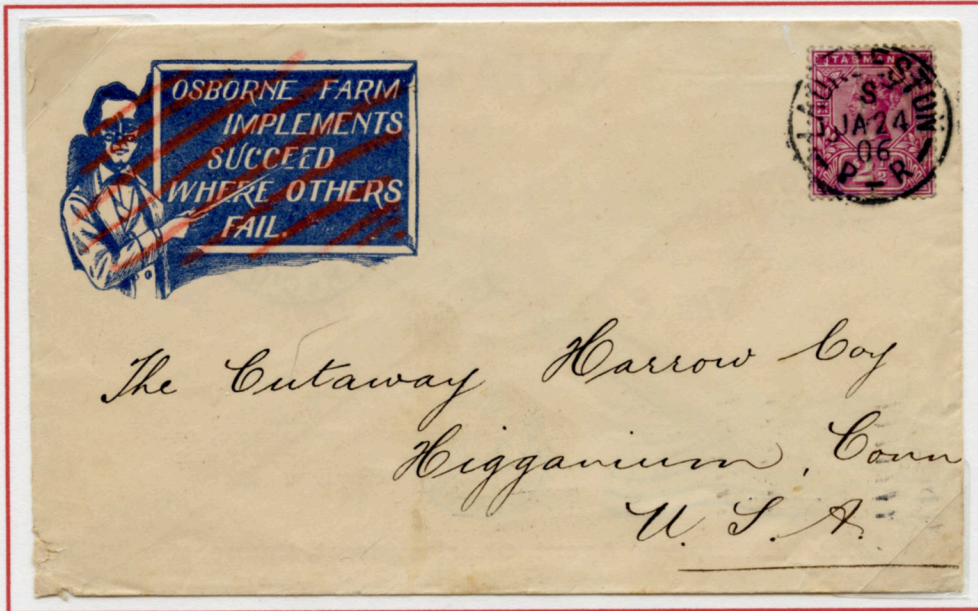 OSBORNE FARM
IMPLEMENTS
SUCCEED
WHERE OTHERS
FAIL.
TASMAN
LAUNCESTON
S
JA 24
06
P R
2½
The Cutaway Harrow Coy
Higganium, Conn
U. S. A.